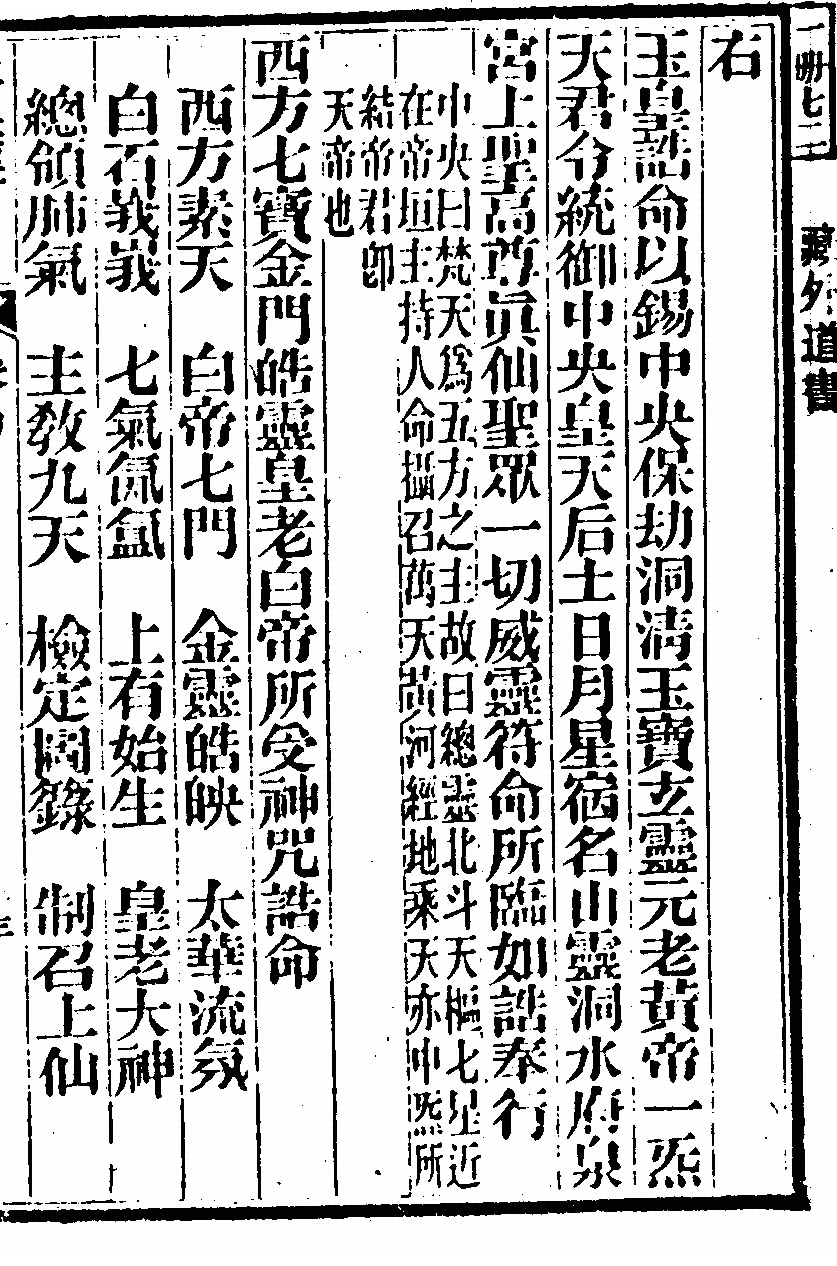 一冊七二
藏外道書
右
玉皇誥命以錫中央保劫洞清玉寶玄靈元老黃帝一炁
天君令統御中央皇天后土日月星宿名山靈洞水府泉
宮上聖高尊眞仙聖眾一切威靈符命所臨如誥奉行
中央曰梵天爲五方之主故曰總靈北斗天樞七星近
在帝垣主持人命攝召萬天黃河經地乘天亦中炁所
結帝君卽
天帝也
西方七寶金門皓靈皇老白帝所受神咒誥命
西方素天　白帝七門　金靈皓映　太華流氛
白石峩峩　七氣氤氳　上有始生　皇老大神
總領肺氣　主教九天　檢定圖籙　制召上仙